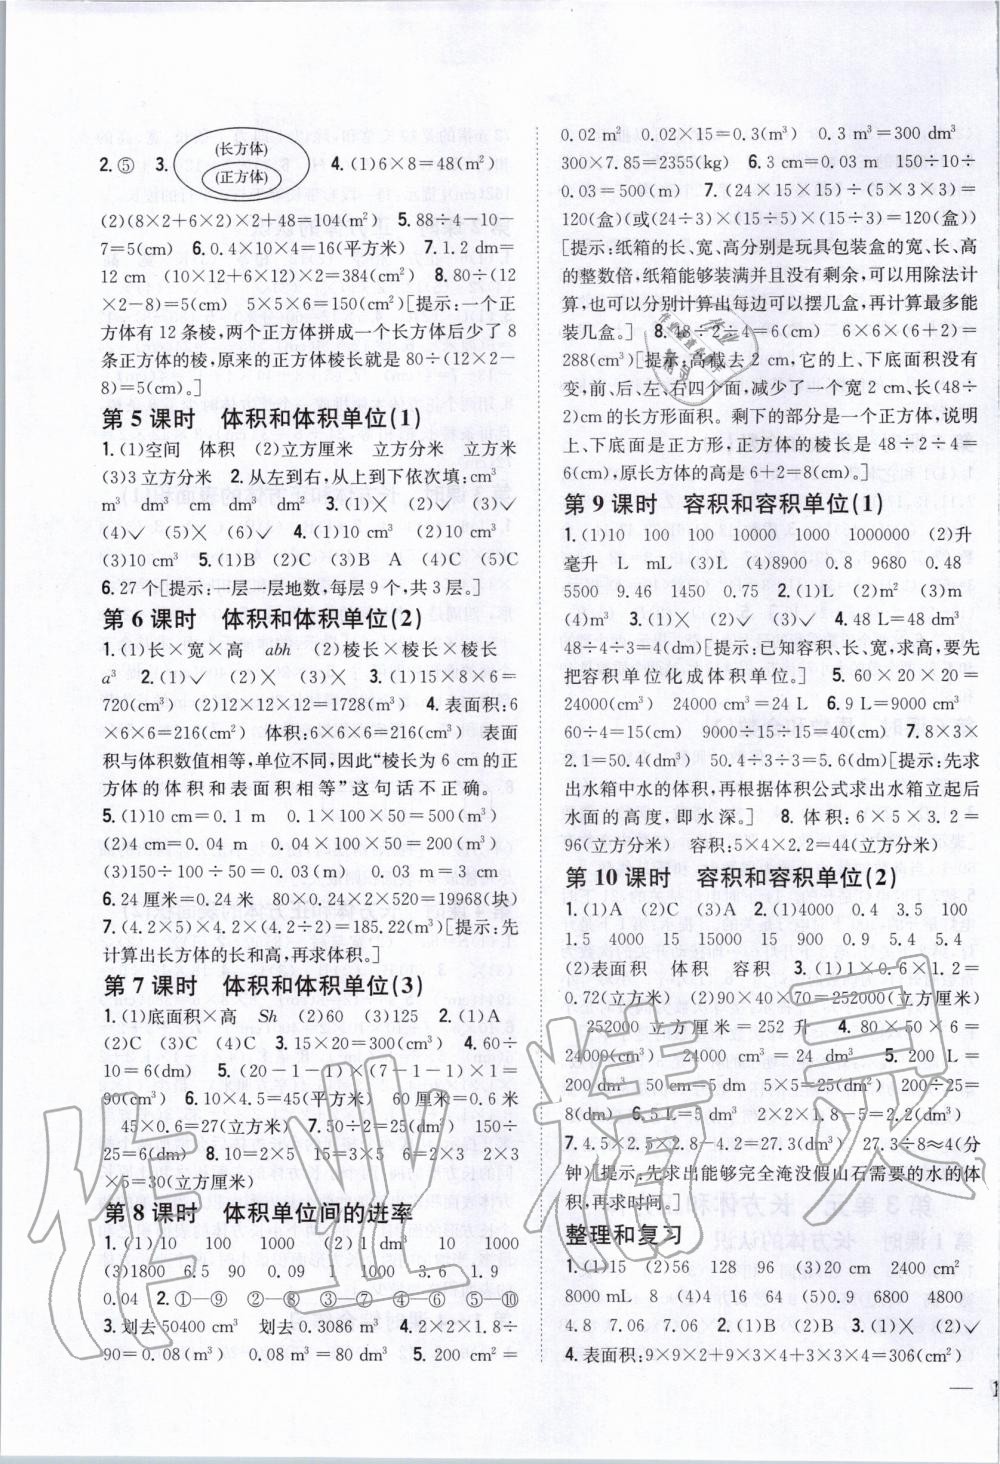 2.⑤ 3. (长方体) (正方体) 4.(1)6×8=48(m²)
(2)(8×2+6×2)×2+48=104(m²) 5.88÷4-10-
7=5(cm) 6.0.4×10×4=16(平方米) 7.1.2 dm=
12 cm (10×12+6×12)×2=384(cm²) 8.80÷(12
×2-8)=5(cm) 5×5×6=150(cm²)[提示:一个正
方体有12条棱,两个正方体拼成一个长方体后少了8
条正方体的棱,原来的正方体棱长就是80÷(12×2-
8)=5(cm)。]
第5课时 体积和体积单位(1)
1.(1)空间 体积 (2)立方厘米 立方分米 立方米
(3)3立方分米 2.从左到右,从上到下依次填:cm²
m³ dm³ cm dm² dm³ 3.(1)× (2)√ (3)√
(4)√ (5)× (6)√ 4.(1)10 cm³ (2)10 cm³
(3)10 cm³ 5.(1)B (2)C (3)B A (4)C (5)C
6.27个[提示:一层一层地数,每层9个,共3层。]
第6课时 体积和体积单位(2)
1.(1)长×宽×高 abh (2)棱长×棱长×棱长
a³ 2.(1)√ (2)× (3)× 3.(1)15×8×6=
720(cm³) (2)12×12×12=1728(m³) 4.表面积:6
×6×6=216(cm²) 体积:6×6×6=216(cm³) 表面
积与体积数值相等,单位不同,因此“棱长为6 cm的正
方体的体积和表面积相等”这句话不正确。
5.(1)10 cm=0.1 m 0.1×100×50=500(m³)
(2)4 cm=0.04 m 0.04×100×50=200(m³)
(3)150÷100÷50=0.03(m) 0.03 m=3 cm
6.24厘米=0.24米 80×0.24×2×520=19968(块)
7.(4.2×5)×4.2×(4.2÷2)=185.22(m³)[提示:先
计算出长方体的长和高,再求体积。]
第7课时 体积和体积单位(3)
1.(1)底面积×高 Sh (2)60 (3)125 2.(1)A
(2)C (3)C (4)C 3.15×20=300(cm³) 4.60÷
10=6(dm) 5.(20-1-1)×(7-1-1)×1=
90(cm³) 6.10×4.5=45(平方米) 60厘米=0.6米
45×0.6=27(立方米) 7.50÷2=25(dm²) 150÷
25=6(dm) 8.10=2×5 15=3×5 6=2×3 2×3
×5=30(立方厘米)
第8课时 体积单位间的进率
1.(1)10 100 1000 (2)1 dm³ 10 m
(3)1800 6.5 90 0.09 1 1000 3.6 1.9
0.04 2.①—⑨ ②—⑧ ③—⑦ ④—⑥ ⑤—⑩
3.划去50400 cm³ 划去0.3086 m³ 4.2×2×1.8÷
90=0.08(m³) 0.08 m³=80 dm³ 5.200 cm²=
0.02 m² 0.02×15=0.3(m³) 0.3 m³=300 dm³
300×7.85=2355(kg) 6.3 cm=0.03 m 150÷10÷
0.03=500(m) 7.(24×15×15)÷(5×3×3)=
120(盒)(或(24÷3)×(15÷5)×(15÷3)=120(盒))
[提示:纸箱的长、宽、高分别是玩具包装盒的宽、长、高
的整数倍,纸箱能够装满并且没有剩余,可以用除法计
算,也可以分别计算出每边可以摆几盒,再计算最多能
装几盒。] 8.48÷2÷4=6(cm) 6×6×(6+2)=
288(cm³)[提示:高截去2 cm,它的上、下底面积没有
变,前、后、左、右四个面,减少了一个宽2 cm、长(48÷
2)cm的长方形面积。剩下的部分是一个正方体,说明
上、下底面是正方形,正方体的棱长是48÷2÷4=
6(cm),原长方体的高是6+2=8(cm)。]
第9课时 容积和容积单位(1)
1.(1)10 100 100 10000 1000 1000000 (2)升
毫升 L mL (3)L (4)8900 0.8 9680 0.48
5500 9.46 1450 0.75 2.(1)L (2)m² (3)m
(4)m³ 3.(1)× (2)√ (3)√ 4.48 L=48 dm³
48÷4÷3=4(dm)[提示:已知容积、长、宽,求高,要先
把容积单位化成体积单位。] 5.60×20×20=
24000(cm³) 24000 cm³=24 L 6.9 L=9000 cm³
60÷4=15(cm) 9000÷15÷15=40(cm) 7.8×3×
2.1=50.4(dm³) 50.4÷3÷3=5.6(dm)[提示:先求
出水箱中水的体积,再根据体积公式求出水箱立起后
水面的高度,即水深。] 8.体积:6×5×3.2=
96(立方分米) 容积:5×4×2.2=44(立方分米)
第10课时 容积和容积单位(2)
1.(1)A (2)C (3)A 2.(1)4000 0.4 3.5 100
1.5 4000 15 15000 15 900 0.9 5.4 5.4
(2)表面积 体积 容积 3.(1)1×0.6×1.2=
0.72(立方米) (2)90×40×70=252000(立方厘米)
252000立方厘米=252升 4.80×50×6=
24000(cm³) 24000 cm³=24 dm³ 5.200 L=
200 dm³ 50 cm=5 dm 5×5=25(dm²) 200÷25=
8(dm) 6.5 L=5 dm³ 2×2×1.8-5=2.2(dm³)
7.4.5×2.5×2.8-4.2=27.3(dm³) 27.3÷8≈4(分
钟)[提示:先求出能够完全淹没假山石需要的水的体
积,再求时间。]
整理和复习
1.(1)15 (2)56 128 96 (3)20 cm 2400 cm²
8000 mL 8 (4)4 16 64 (5)0.9 6800 4800
4.8 7.06 7.06 2.(1)B (2)B 3.(1)× (2)√
4.表面积:9×9×2+9×3×4+3×3×4=306(cm²)
— 1